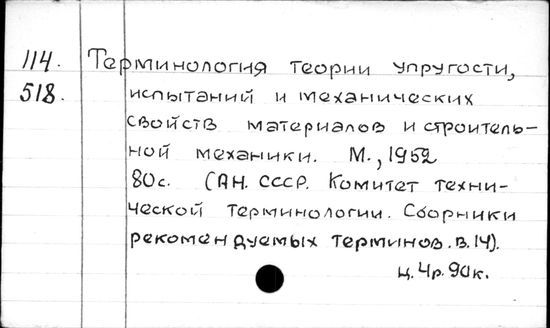 114. Терминология теории упругости,
518. испытаний и механических
свойств материалов и строитель-
ной механики. М., 1952
80с. (АН. СССР. Комитет техни-
ческой терминологии. Сборники
рекомендуемых терминов. в. 14).
ц. 4р. 90к.